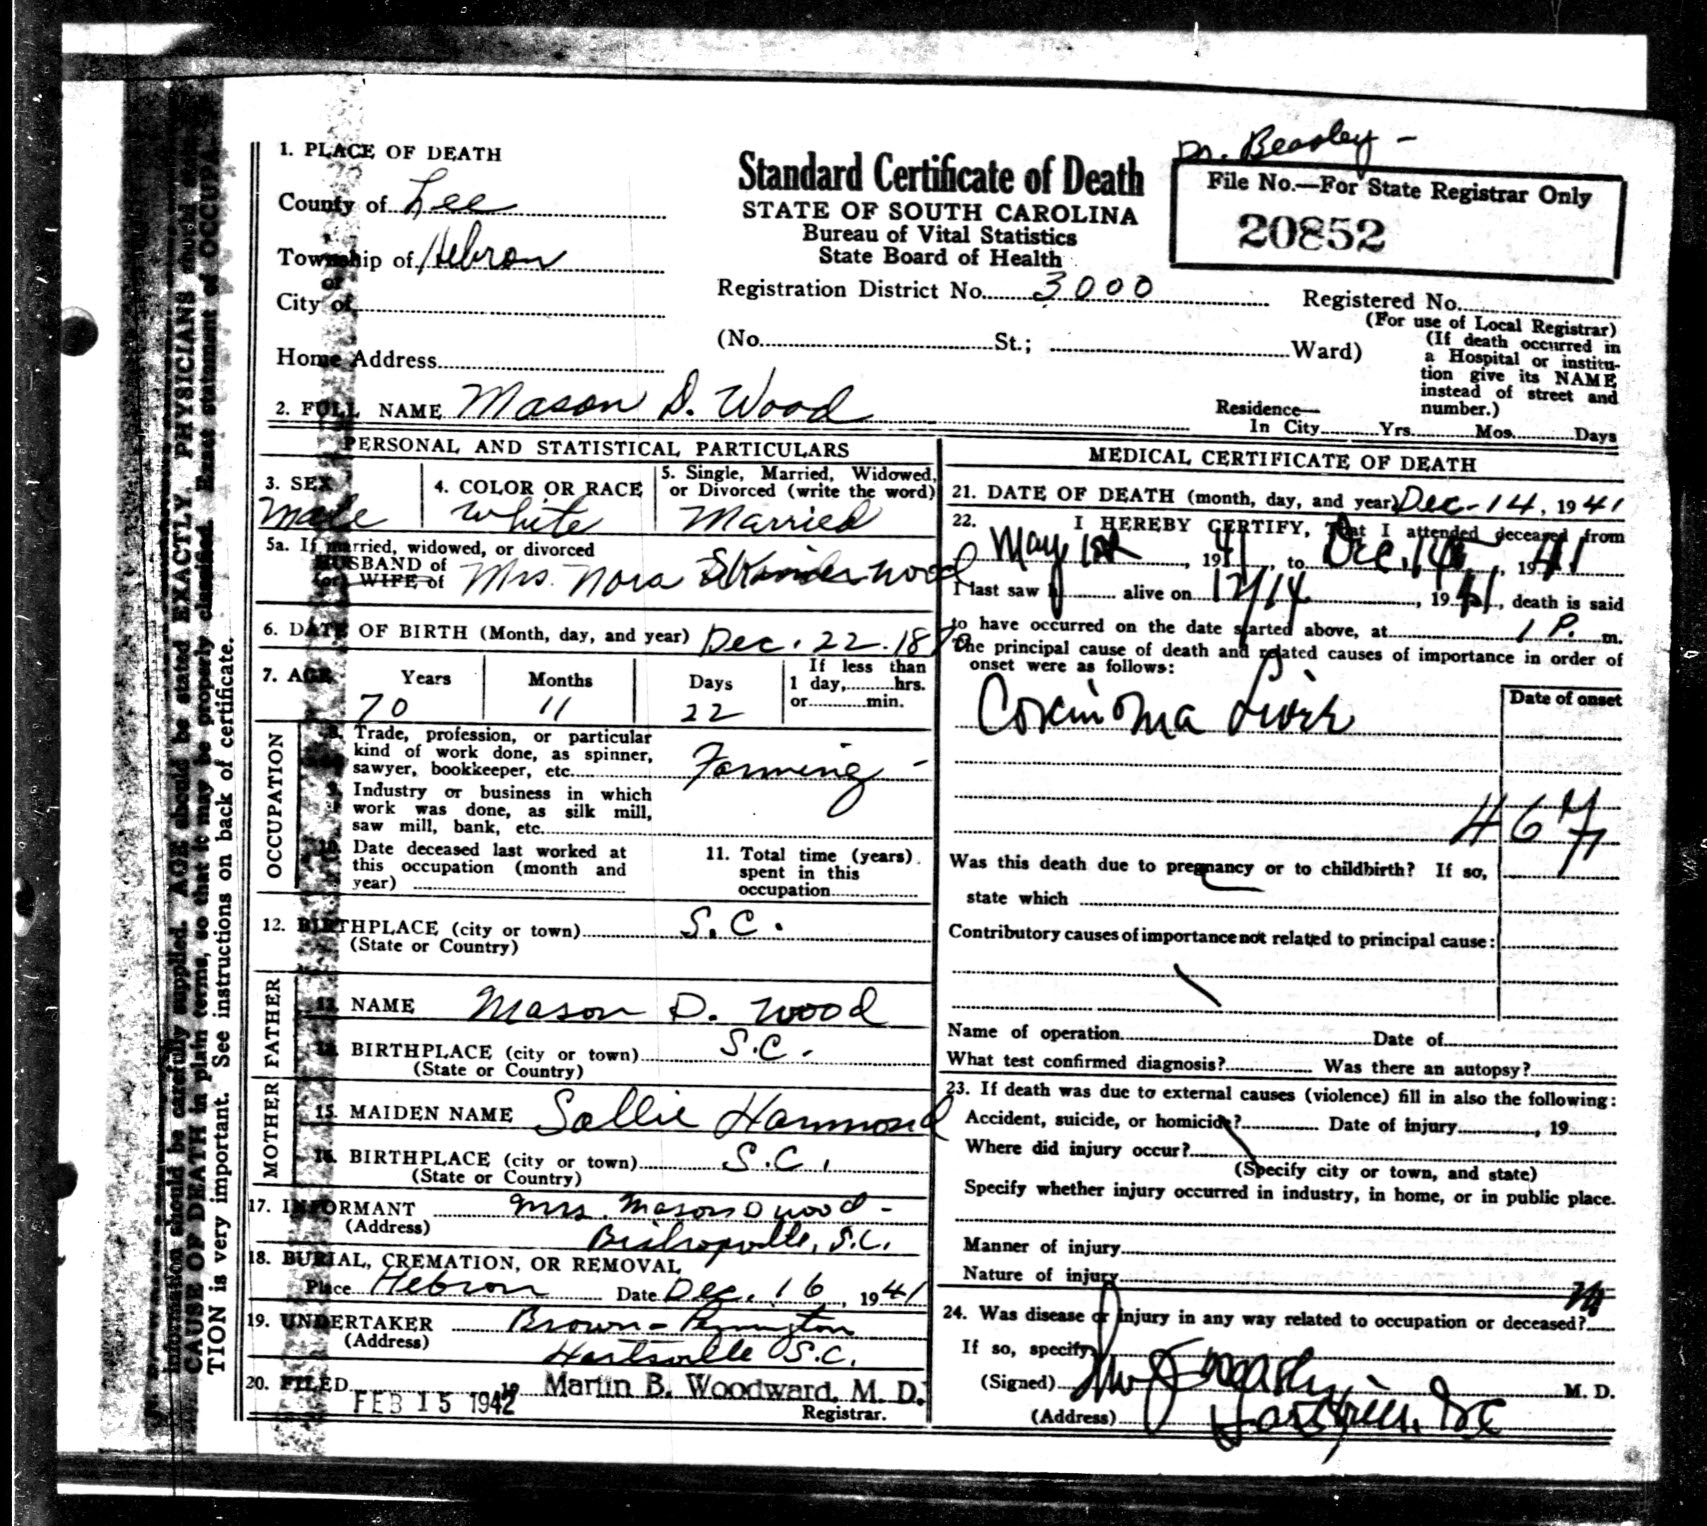 Dr. Beasley -
1. PLACE OF DEATH
County of Lee
Township of Hebron
or
City of
Home Address
Standard Certificate of Death
STATE OF SOUTH CAROLINA
Bureau of Vital Statistics
State Board of Health
Registration District No. 3000
(No. St.; Ward)
File No.—For State Registrar Only
20852
Registered No.
(For use of Local Registrar)
(If death occurred in
a Hospital or institu-
tion give its NAME
instead of street and
number.)
2. FULL NAME Mason D. Wood
Residence—
In City Yrs. Mos. Days
PERSONAL AND STATISTICAL PARTICULARS
3. SEX
Male
4. COLOR OR RACE
White
5. Single, Married, Widowed,
or Divorced (write the word)
Married
5a. If married, widowed, or divorced
HUSBAND of
(or) WIFE of Mrs. Nora Wood
6. DATE OF BIRTH (Month, day, and year) Dec. 22. 1870
7. AGE Years Months Days
70 11 22
If less than
1 day, hrs.
or min.
OCCUPATION
8. Trade, profession, or particular
kind of work done, as spinner,
sawyer, bookkeeper, etc. Farming -
9. Industry or business in which
work was done, as silk mill,
saw mill, bank, etc.
10. Date deceased last worked at
this occupation (month and
year)
11. Total time (years)
spent in this
occupation
12. BIRTHPLACE (city or town) S.C.
(State or Country)
FATHER
13. NAME Mason D. Wood
14. BIRTHPLACE (city or town) S.C.
(State or Country)
MOTHER
15. MAIDEN NAME Sallie Hammond
16. BIRTHPLACE (city or town) S.C.
(State or Country)
17. INFORMANT Mrs. Mason D Wood -
(Address) Bishopville, S.C.
18. BURIAL, CREMATION, OR REMOVAL
Place Hebron Date Dec. 16, 1941
19. UNDERTAKER Brown-Pennington
(Address) Hartsville S.C.
20. FILED FEB 15 1942 19 Martin B. Woodward, M. D.
Registrar.
MEDICAL CERTIFICATE OF DEATH
21. DATE OF DEATH (month, day, and year) Dec-14, 1941
22. I HEREBY CERTIFY, That I attended deceased from
May 1st, 1941, to Dec. 14, 1941
I last saw h alive on 12/14, 1941, death is said
to have occurred on the date started above, at 1 P. m.
The principal cause of death and related causes of importance in order of
onset were as follows:
Date of onset
Carcinoma Liver
46
Was this death due to pregnancy or to childbirth? If so,
state which
Contributory causes of importance not related to principal cause:
Name of operation Date of
What test confirmed diagnosis? Was there an autopsy?
23. If death was due to external causes (violence) fill in also the following:
Accident, suicide, or homicide? Date of injury, 19
Where did injury occur?
(Specify city or town, and state)
Specify whether injury occurred in industry, in home, or in public place.
Manner of injury
Nature of injury
24. Was disease or injury in any way related to occupation or deceased?
If so, specify
(Signed) M. D.
(Address)
information should be carefully supplied. AGE should be stated EXACTLY. PHYSICIANS should state
CAUSE OF DEATH in plain terms, so that it may be properly classified. Exact statement of OCCUPA-
TION is very important. See instructions on back of certificate.